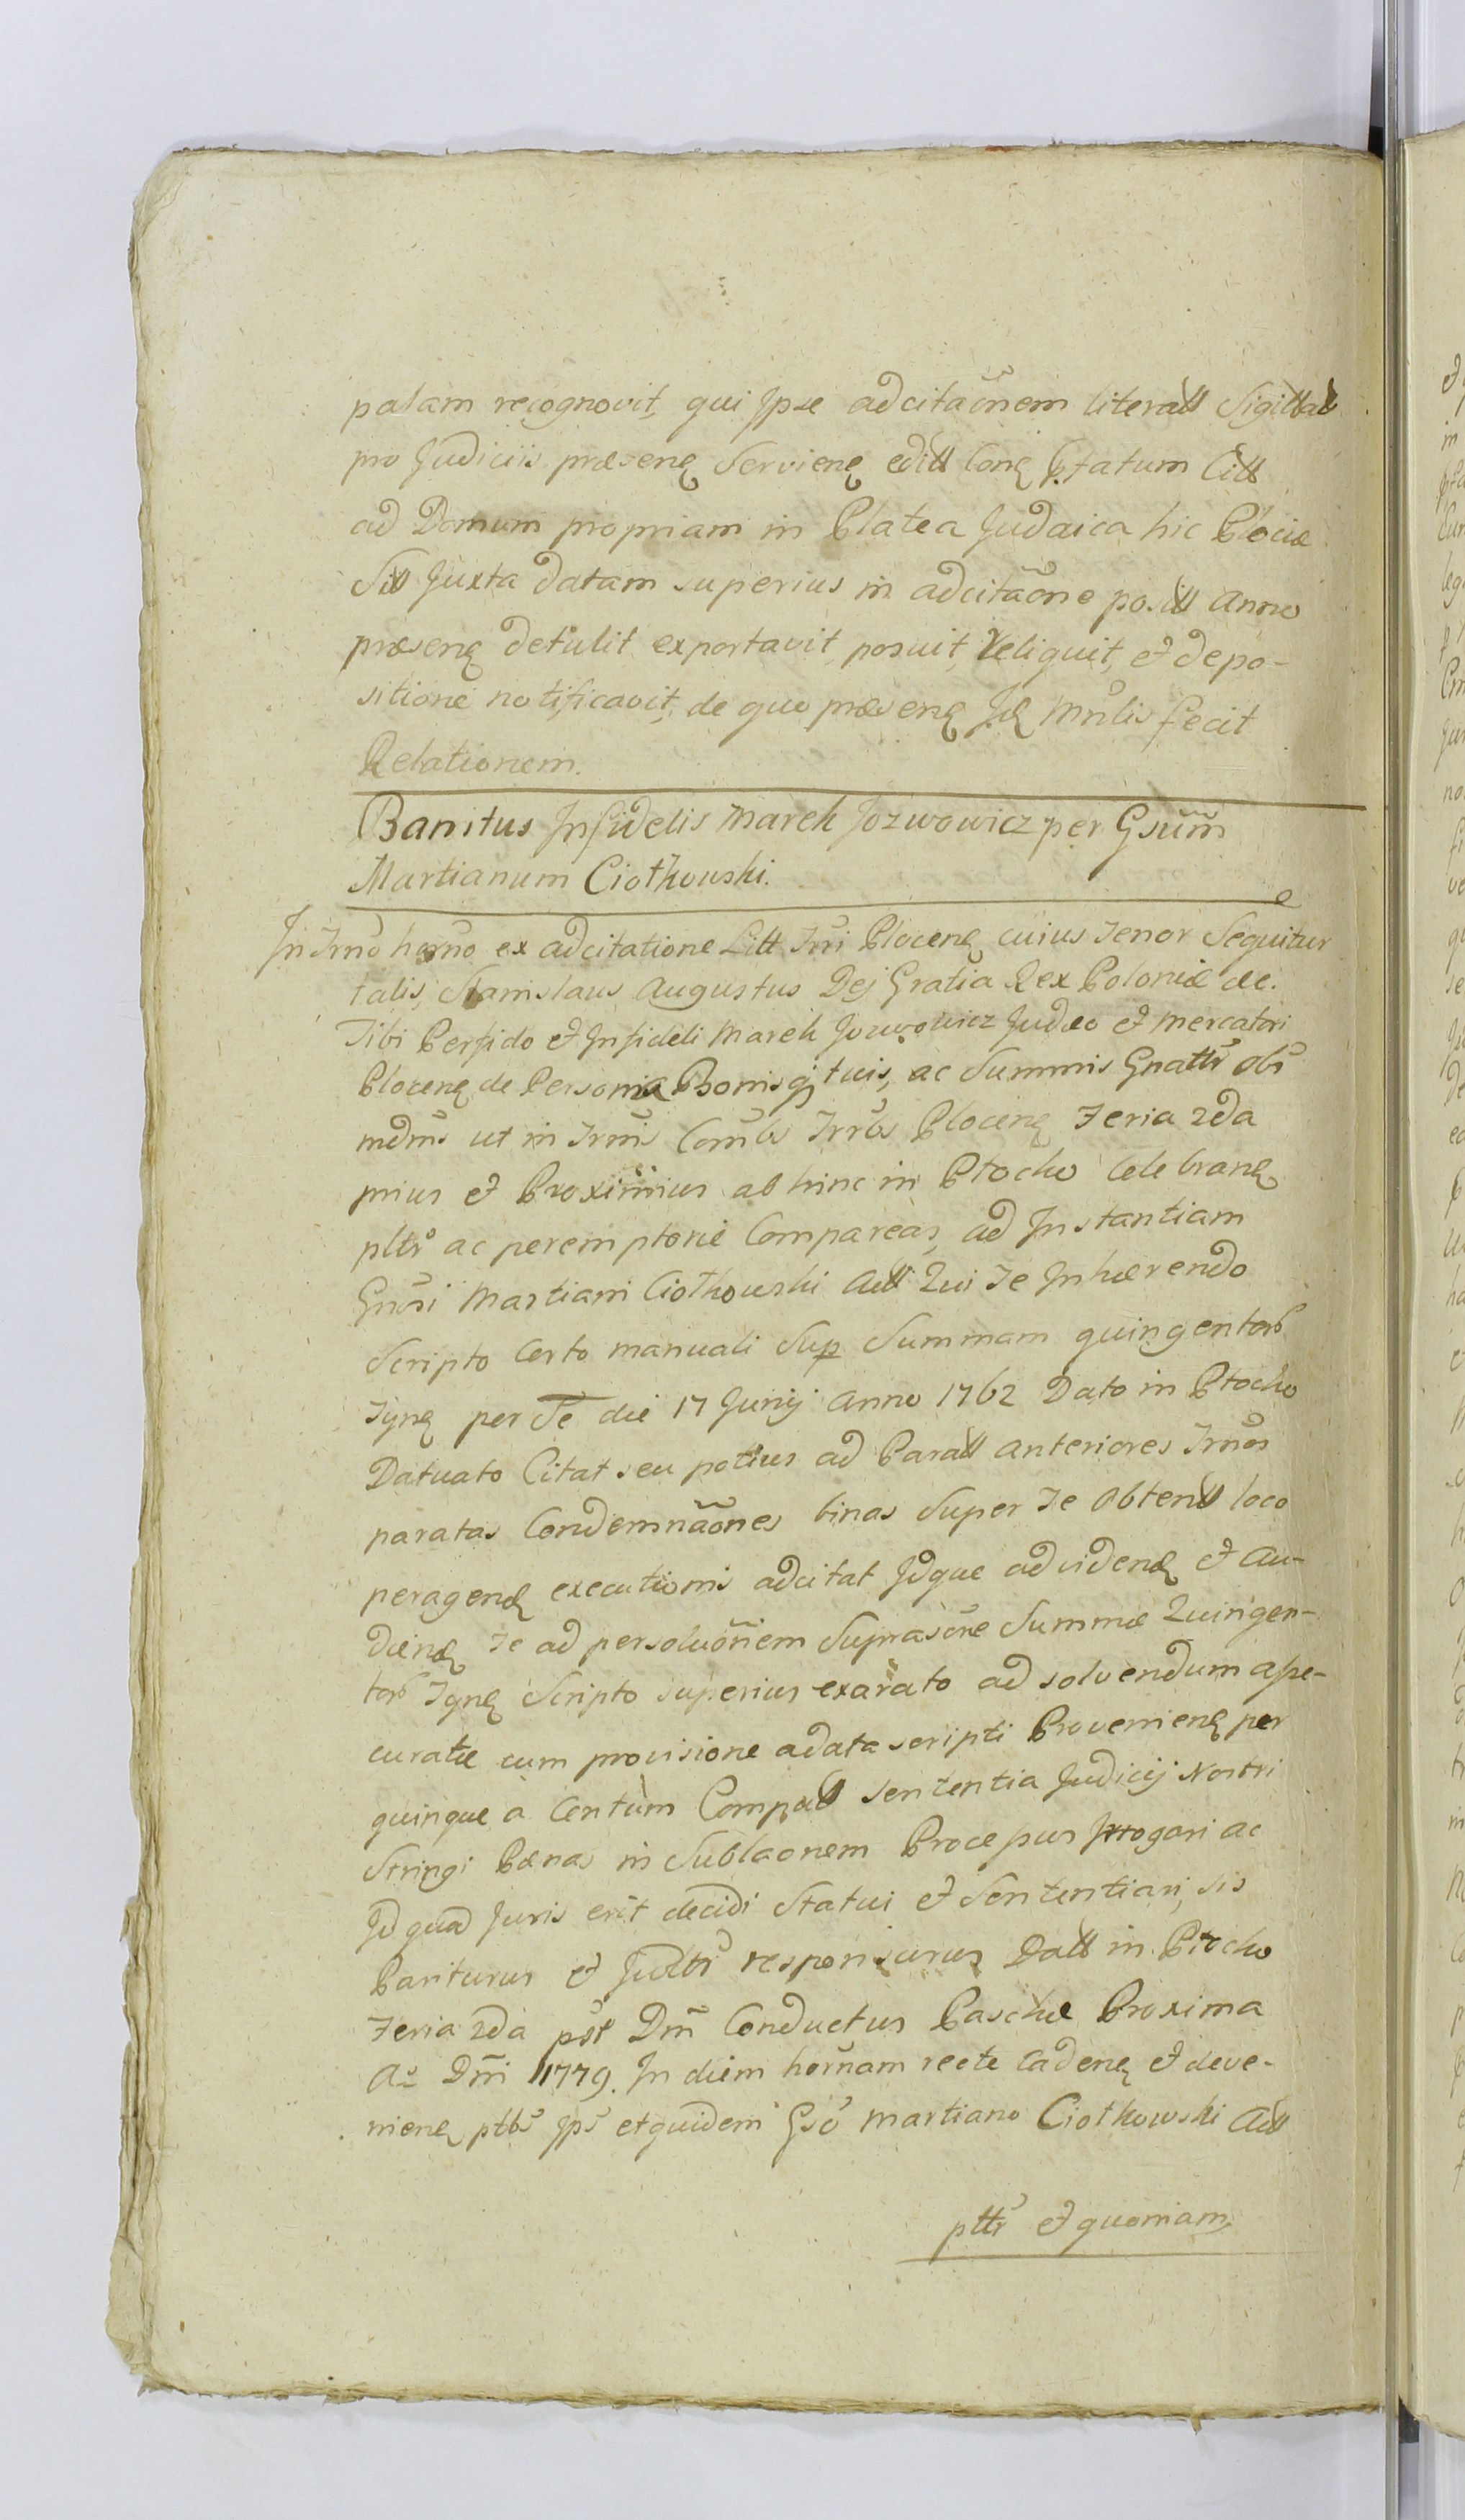 palam recognovit, qui Ipse adcitaõnem literatt Sigittatt
pro Judiciis præsenę Servienę editt Conę Ptatum Citt
ad Domum propriam in Platea Judaica hic Plociæ
Sitt Juxta datam superius in adcitaõne positt anno
præsenę detulit exportavit posuit, Reliquit, et depo-
sitione notificavit, de quo præsenę Mnlis fecit
Relationem.
Banitus Infidelis Marek Jozwowicz per Gsum̃
Martianum Ciołkowski.
In Trnõ horño ex adcitatione Litt Trri Plocenę cuius Tenor Sequitur
talis, Stanislaus Augustus Dej Gratia Rex Poloniæ &c.
Tibi Perfido et Infideli Marek Jozwowicz Judæo et Mercatori
Plocenę de Persona Bonisqȝ tuis, ac Summis Gnattr obĩ
mdms ut in Trmis Comb̃s Trrb̃s Plocenę Feria 2da
prius et Proximius ab hinc in Płocko Celebranę
pltr ac peremptorie Compareas, ad Instantiam
Gnosi Martiani Ciołkowski Actt Qui Te Inhærendo
Scripto Certo manuali Sup Summam quingentor̃
Tynę per Te die 17 Junij Anno 1762 Dato in Płocko
Datuato Citat seu potius ad Paratt anteriores Trños
paratas Condemnaõnes binas Super Te Obtentt loco
peragenę executionis adcitat Idque ad videnę et Au-
dienę Te ad persoluoñem Suprascr̃e Summæ Quingen-
tor̃ Tynę Scripto superius exarato ad solvendum asse-
curatæ cum provisione a data scripti Provenienę per
quinque à Centum Compell Sententia Judicij Nostri
Stringi Pænas in Sublaonem Processus Irrogari ac
Id quod Juris erit decidi Statui et Sententiari, sis
Pariturus et Judtr responsurus Datt in Płocko
Feria 2da post Dm̃ Conductus Paschæ Proxima
Aº Dm̃i 1779. In diem horñam recte Cadenę et deve-
nienę ptbs Ips̃ et quidem Gsõ Martiano Ciołkowski Actt
pltr et quoniam